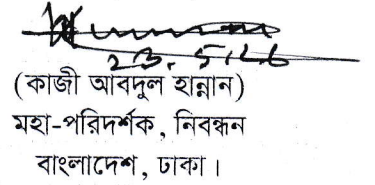 23.5.16
(কাজী আবদুল হান্নান)
মহা-পরিদর্শক, নিবন্ধন
বাংলাদেশ, ঢাকা।